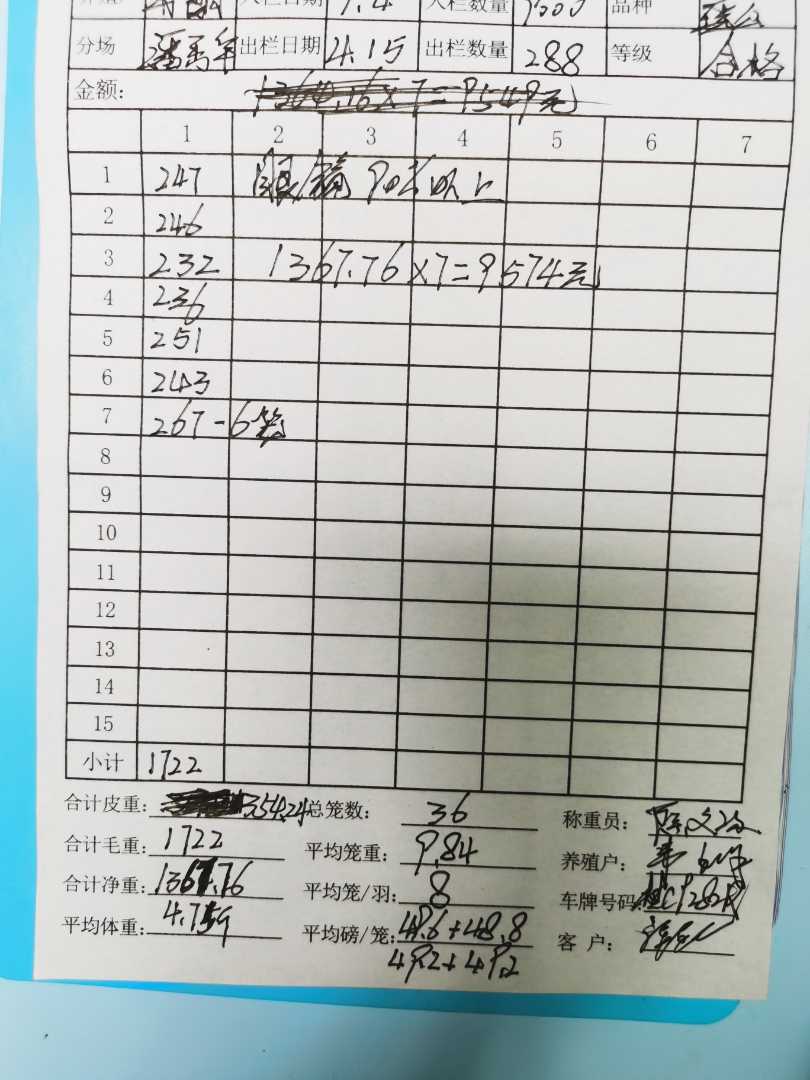 入栏日期 入栏数量 品种
分场 出栏日期 4.15 出栏数量 288 等级 合格
金额: 1364.16×7=9549元
1 2 3 4 5 6 7
1 247 眼 90%以上
2 246
3 232 1367.76×7=9574元
4 236
5 251
6 243
7 267-6笼
8
9
10
11
12
13
14
15
小计 1722
合计皮重: 354.24 总笼数: 36 称重员:
合计毛重: 1722 平均笼重: 9.84 养殖户:
合计净重: 1367.76 平均笼/羽: 8 车牌号码:
平均体重: 4.75斤 平均磅/笼: 49.6+48.8 客 户:
49.2+49.2